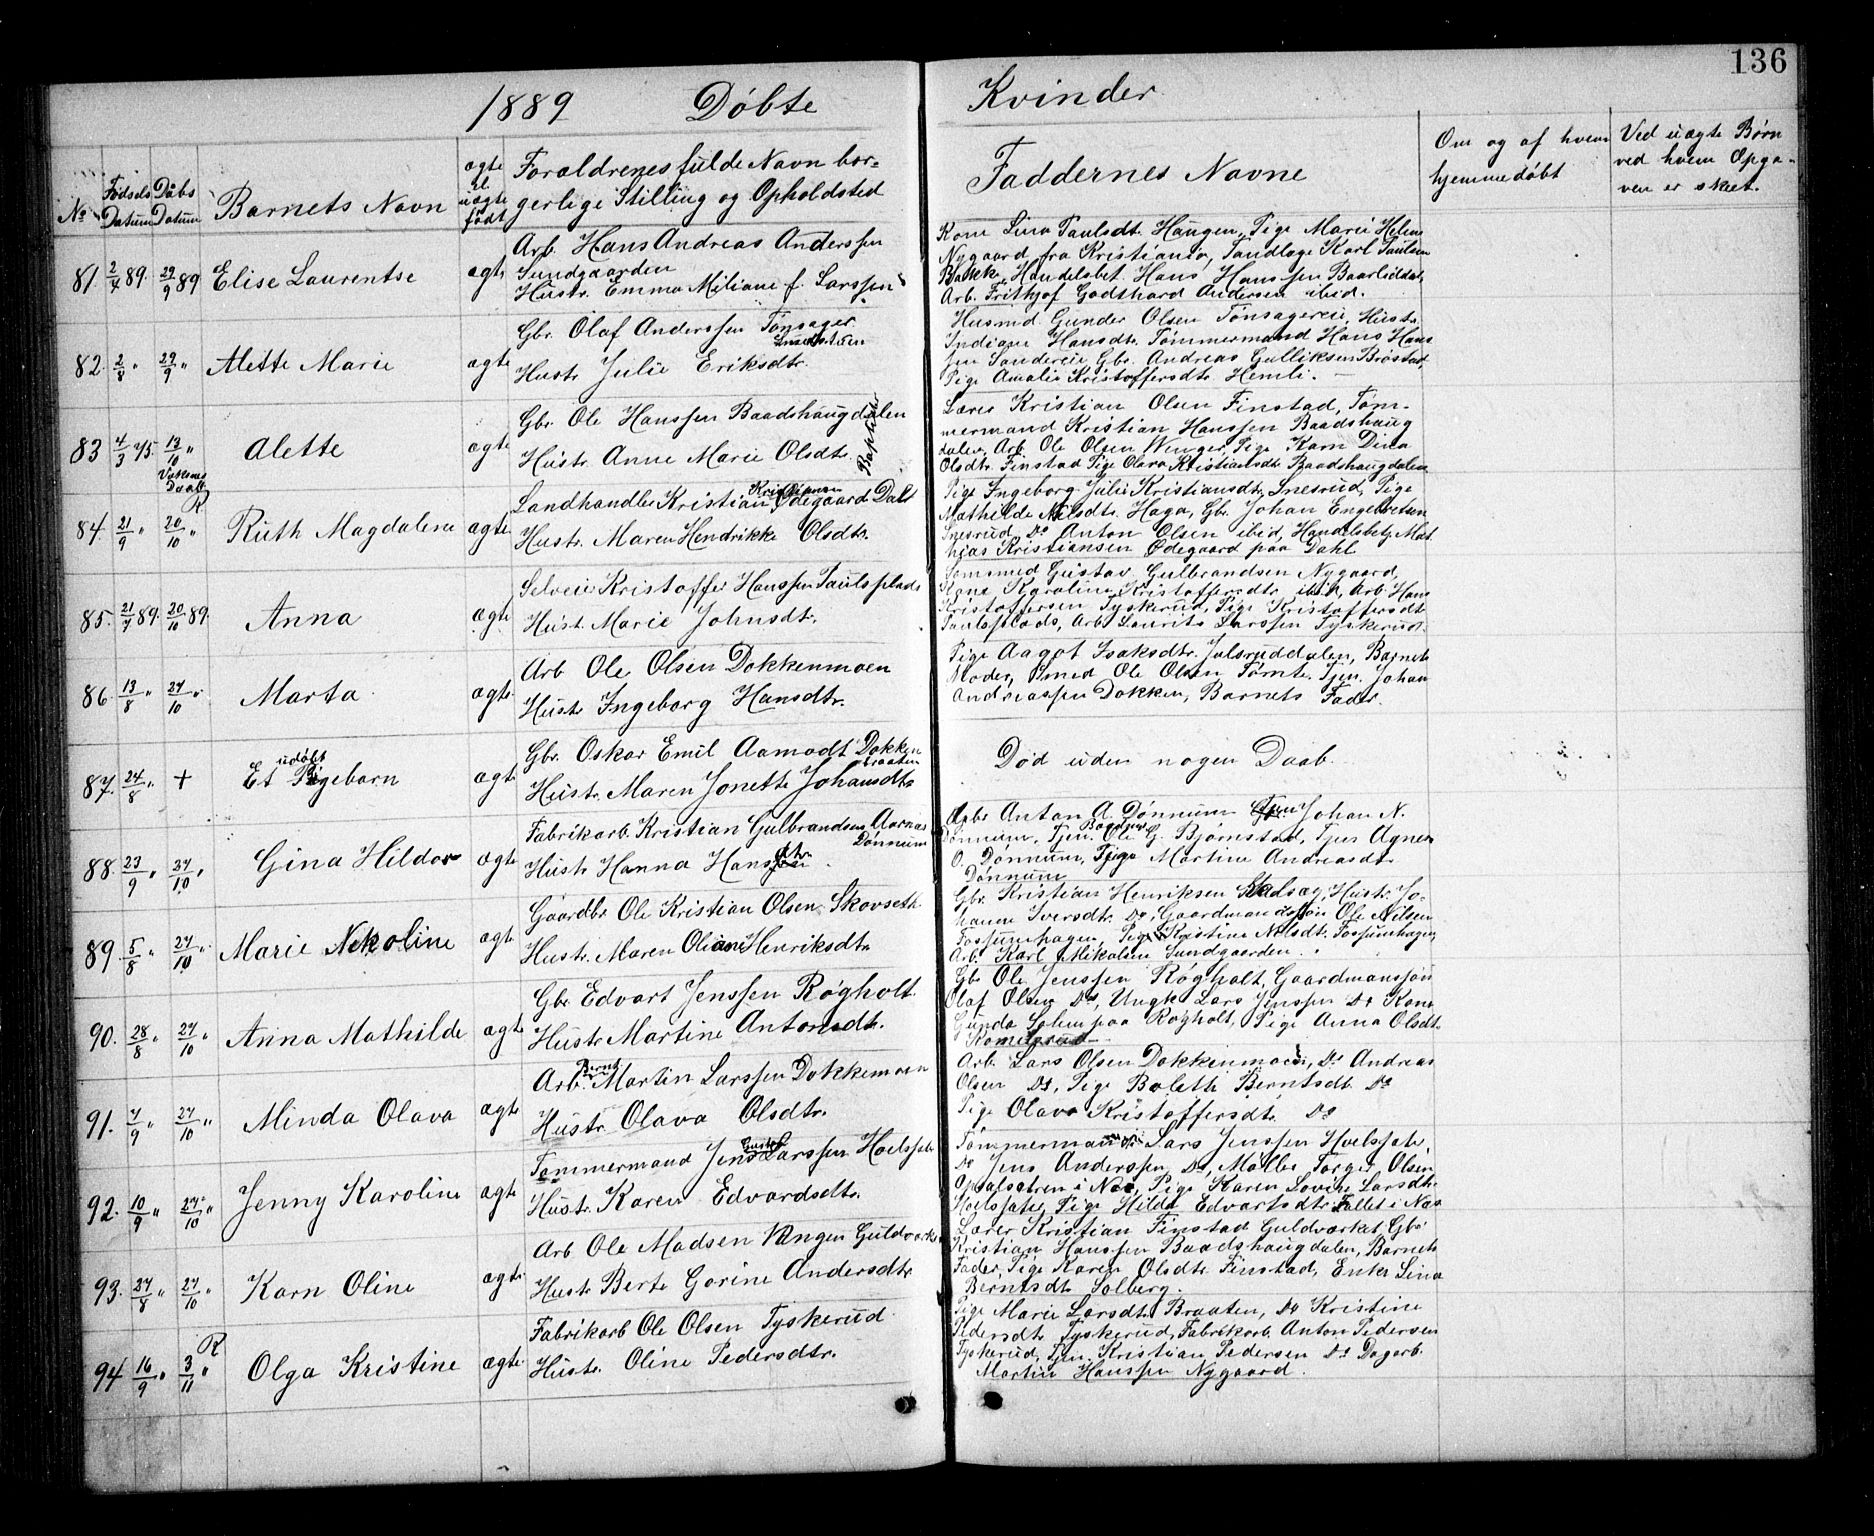 136
1889 Døbte
Kvinder
No
Fødsels Datum
Dåbs Datum
Barnets Navn
ægte el uægte født
Forældrenes fulde Navn bor-
gerlige Stilling og Opholdsted
Faddernes Navne
Om og af hvem
hjemmedøbt
Ved uægte Børn
ved hvem Opga-
ven er skeet.
81. 2/4 89. 29/9 89 Elise Laurentse ægte
Arb. Hans Andreas Anderssen
Sundgaarden
Hustr. Emma Miliane f. Larssen
Kone Lina Paulsdt. Haugen, Pige Marie Helene
Nygaard fra Kristiania, Tandlæge Karl Paulsen
Bakke, Handelsbet. Hans Hanssen
Arb. Frithjof Godthard Andersen ibid.
82. 2/8 " 29/9 " Alette Marie ægte
Gbr. Olaf Anderssen Tønsager
Hustr Julie Eriksdtr.
Husmd. Gunder Olsen Tønsagereie, Hustr.
Indiane Hansdtr. Tømmermand Hans Hans
sen Sandereie, Gbr. Andreas Gulliksen Brøstad,
Pige Amalie Kristoffersdtr Hemli.
83 4/3 75. 13/10 " Alette ægte
Voksens Daab
Gbr. Ole Hanssen Baadshaugdalen
Hustr. Anne Marie Olsdtr.
Baptister
Lærer Kristian Olsen Finstad, Tøm-
mermand Kristian Hanssen Baadshaug
dalen, Arb. Ole Olsen Winger, Pige Karn Dina
Olsdtr. Finstad Pige Olava Kristiansdt Baadshaugdalen
84. 21/9 " 20/10 " R Ruth Magdalene ægte
Landhandler Kristian Kristiansen Ødegaard Dahl
Hustr. Maren Hendrikke Olsdtr.
Pige Ingeborg Julie Kristiansdt, Snesrud, Pige
Mathilde Nilsdtr. Haga, Gbr. Johan Engebretsen
Snesrud, Do Anton Olsen ibid, Handelsbetj. Mat
hias Kristiansen Ødegaard paa Dahl
85. 21/7 89. 20/10 89. Anna ægte
Selveier Kristoffer Hanssen Paulsplads
Hust. Marie Johnsdt.
Gustav Gulbrandsen Nygaard,
Kone Karoline Kristoffersdtr ibid, Arb. Hans
Kristoffersen Tyskerud, Pige Kristoffersdtr
Paulsplads, Arb Laurits Larssen Tyskerud.
86 13/8 " 27/10 " Marta ægte
Arb Ole Olsen Dokkenmoen
Hustr Ingeborg Hansdtr.
Pige Aagot Isaksdtr. Julsruddalen, Barnets
Moder, Smed Ole Olsen Tomte, Tjen. Johan
Andreassen Dokken, Barnets Fader.
87. 24/8 " + Et udøbt Pigebarn ægte
Gbr. Oskar Emil Aamodt Dokken
braaten
Hustr. Maren Jonette Johansdtr
Død uden nogen Daab.
88. 23/9 " 27/10 " Gina Hilda ægte
Fabrikarb. Kristian Gulbrandsen Aarnæs
Dønnum
Hustr Hanna Hansdtr.
Gbr Anton A. Dønnum Johan N.
Dønnum, Tjen. Ole G. Bjørnstad, Tjen Agnes
O. Dønnum, Pige Martine Andreasdt
Dønnum
89 5/8 " 27/10 " Marie Nekoline ægte
Gaardbr Ole Kristian Olsen Skovseth
Hustr. Maren Oliane Henriksdtr
Gbr. Kristian Henriksen, Hustr Jo-
hanne Iversdtr Do, Gaardmandssøn Ole Nilsen
Fossumhagen, Pige Kristine Nilsdt. Fossumhagen,
Arb. Karl Mikalsen Sundgaarden.
90. 28/8 " 27/10 " Anna Mathilde ægte
Gbr Edvart Jenssen Røgholt
Hustr Martine Antonsdtr.
Gbr Ole Jenssen Røgholt, Gaardmanssøn
Olaf Olsen Do, Ungk. Lars Jenssen Do Kone
Gunda Solum paa Røgholt, Pige Anna Olsdt.
Komelsrud
91. 7/9 " 27/10 " Minda Olava ægte
Arb. Bernt Martin Larssen Dokkemoen
Hustr Olava Olsdtr.
Arb. Lars Olsen Dokkenmoen, Do Andreas
Olsen Do, Pige Bolette Berntsdt. Do
Pige Olava Kristoffersdt. Do
92. 10/9 " 27/10 " Jenny Karoline ægte
Tømmermand Jens Gustaf Larssen Hoelsjøte
Hustr. Karen Edvardsdtr.
Tømmermand Lars Jenssen Hoelsjøte,
Do Jens Anderssen Do, Møller Torger Olsen
Opsalsætren i Næs, Pige Karen Lovise Larsdtr
Hoelsjøte, Pige Hilda Edvartsdtr Fallet i Næs
93. 27/8 " 27/10 " Karn Oline ægte
Arb Ole Madsen Vangen Guldværket
Hustr Berte Gorine Andersdtr
Lærer Kristian Finstad Guldværket Gbr
Kristian Hanssen Baadshaugdalen, Barnets
Fader, Pige Karen Olsdtr Finstad, Enke Lina
Berntsdt Solberg.
94 16/9 " 3/11 " R Olga Kristine ægte
Fabrikarb Ole Olsen Tyskerud
Hustr. Oline Pedersdtr.
Pige Marie Larsdtr Braaten, Do Kristine
Pedersdtr Tyskerud, Fabrikarb. Anton Pedersen
Tyskerud, Tjen. Kristian Pedersen Do Dagarb.
Martin Hanssen Nygaard.